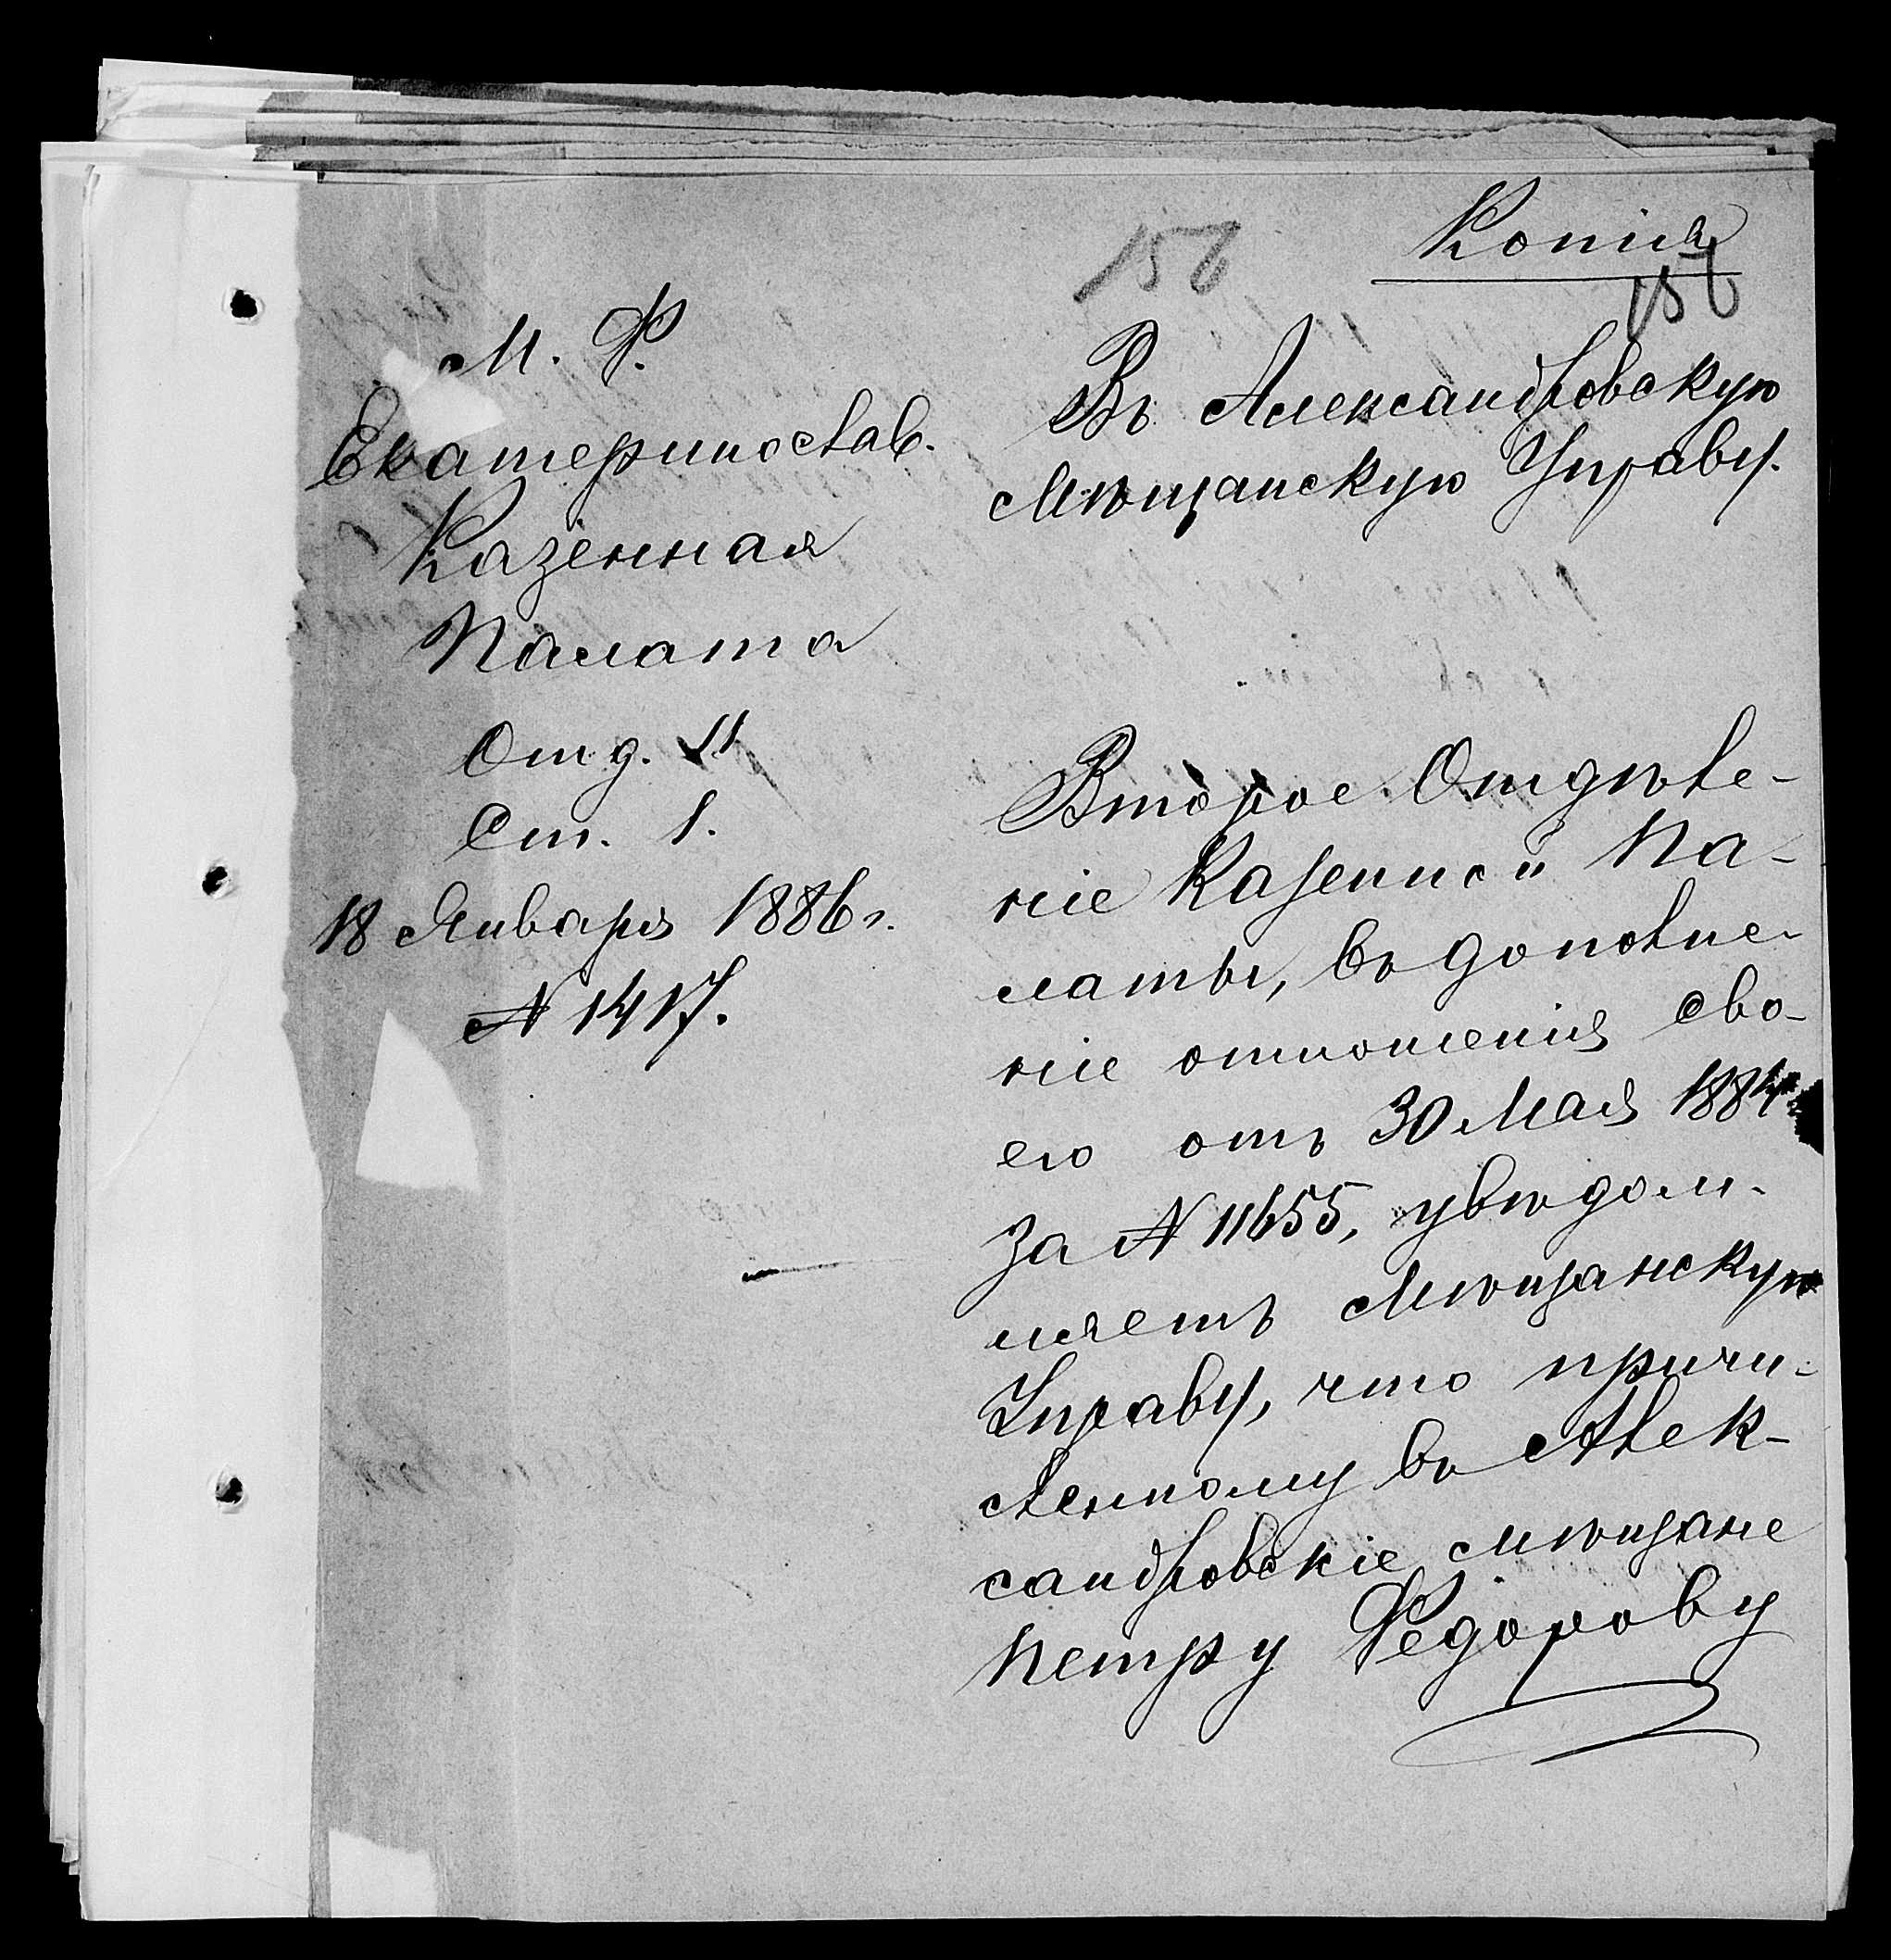 Копія
156
156
М. Ф.
Екатеринослав.
Казенная
Палата
Отд. II
Ст. 1.
18 Января 1886 г.
№ 1417.
Въ Александровскую
Мѣщанскую Управу.
Второе Отдѣле-
ніе Казенной Па-
латы, въ дополне-
ніе отношенія сво-
его отъ 30 Мая 1884
за № 11655, увѣдом-
ляетъ Мѣщанскую
Управу, что причи-
сленному въ Алек-
сандровскіе мѣщане
Петру Федорову